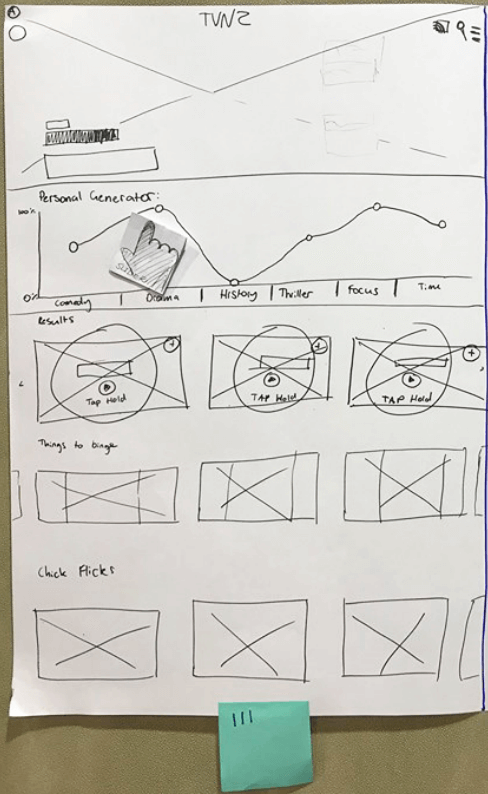 A
TVNZ
Personal Generator:
100%
0%
Comedy | Drama | History | Thriller | Focus | Time
Results
+ + +
Tap Hold TAP Hold TAP Hold
Things to binge
Chick Flicks
III